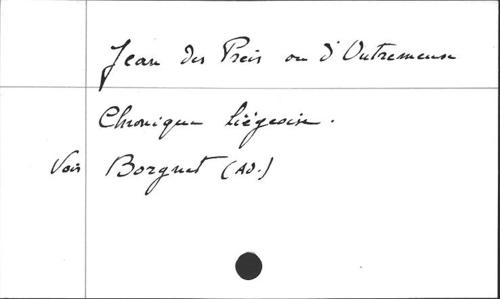 Jean des Preis ou d'Outremeuse
Chronique liégeoise.
Voir Borgnet (Ad.)